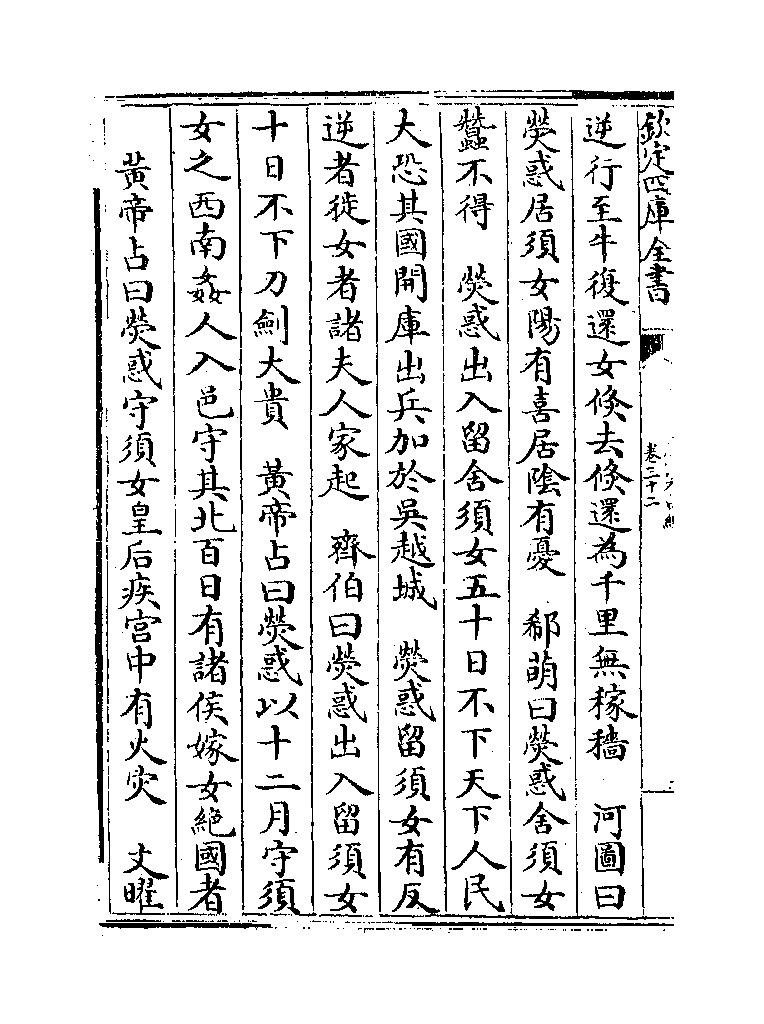 欽定四庫全書
卷三十二
逆行至牛復還女倏去倏還為千里無稼穡　河圖曰
熒惑居須女陽有喜居陰有憂　郗萌曰熒惑舍須女
蠶不得　熒惑出入留舍須女五十日不下天下人民
大恐其國開庫出兵加於吳越城　熒惑留須女有反
逆者徙女者諸夫人家起　齊伯曰熒惑出入留須女
十日不下刀劍大貴　黃帝占曰熒惑以十二月守須
女之西南姦人入邑守其北百日有諸侯嫁女絕國者
黃帝占曰熒惑守須女皇后疾宮中有火灾　文曜